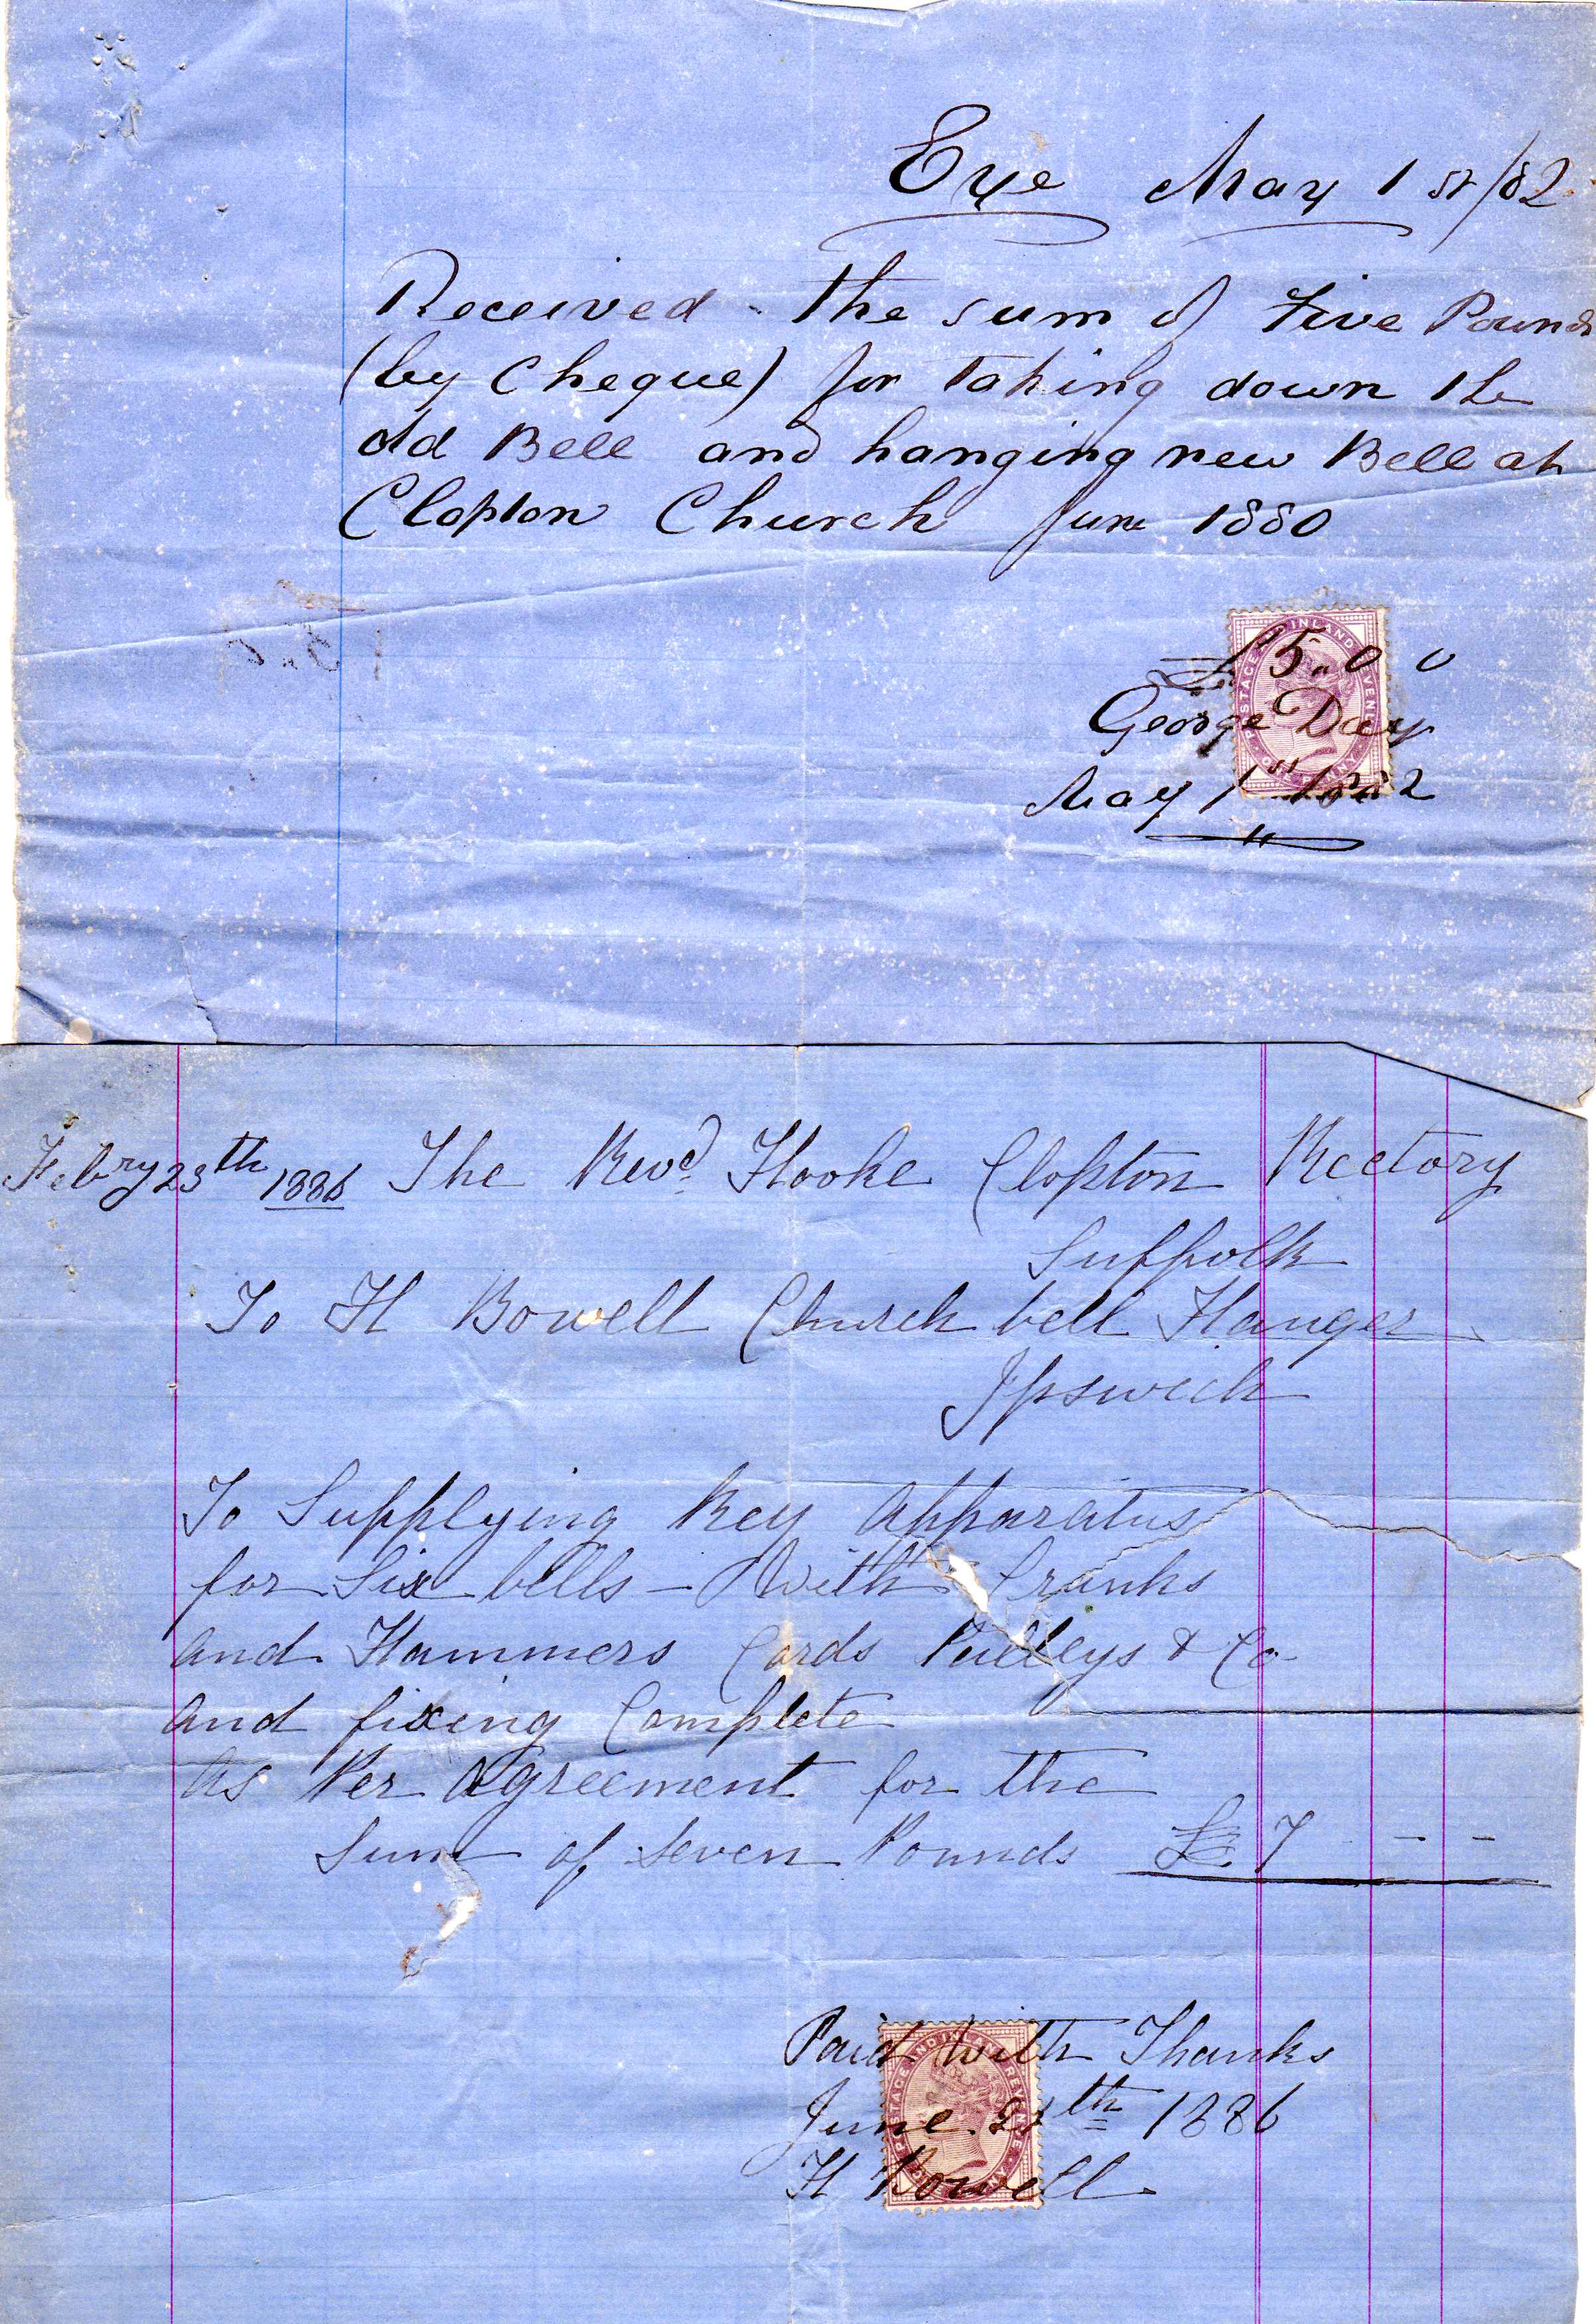 Eye May 1st/82
Received the sum of Five Pounds
(by Cheque) for taking down the
old Bell and hanging new Bell at
Clopton Church June 1880
£5.. 0 0
POSTAGE AND INLAND REVENUE
ONE PENNY
George Day
May 1st 1882
Febry 25th 1886 The Revd. Hooke Clopton Rectory
Suffolk
To H Bowell Church bell Hanger
Ipswich
To Supplying Key Apparatus
for Six bells - With Cranks
and Hammers Cords Pulleys & Co
and fixing Complete
As Per Agreement for the
Sum of Seven Pounds £ 7 - -
Paid With Thanks
POSTAGE AND INLAND REVENUE
June th 1886
H Bowell